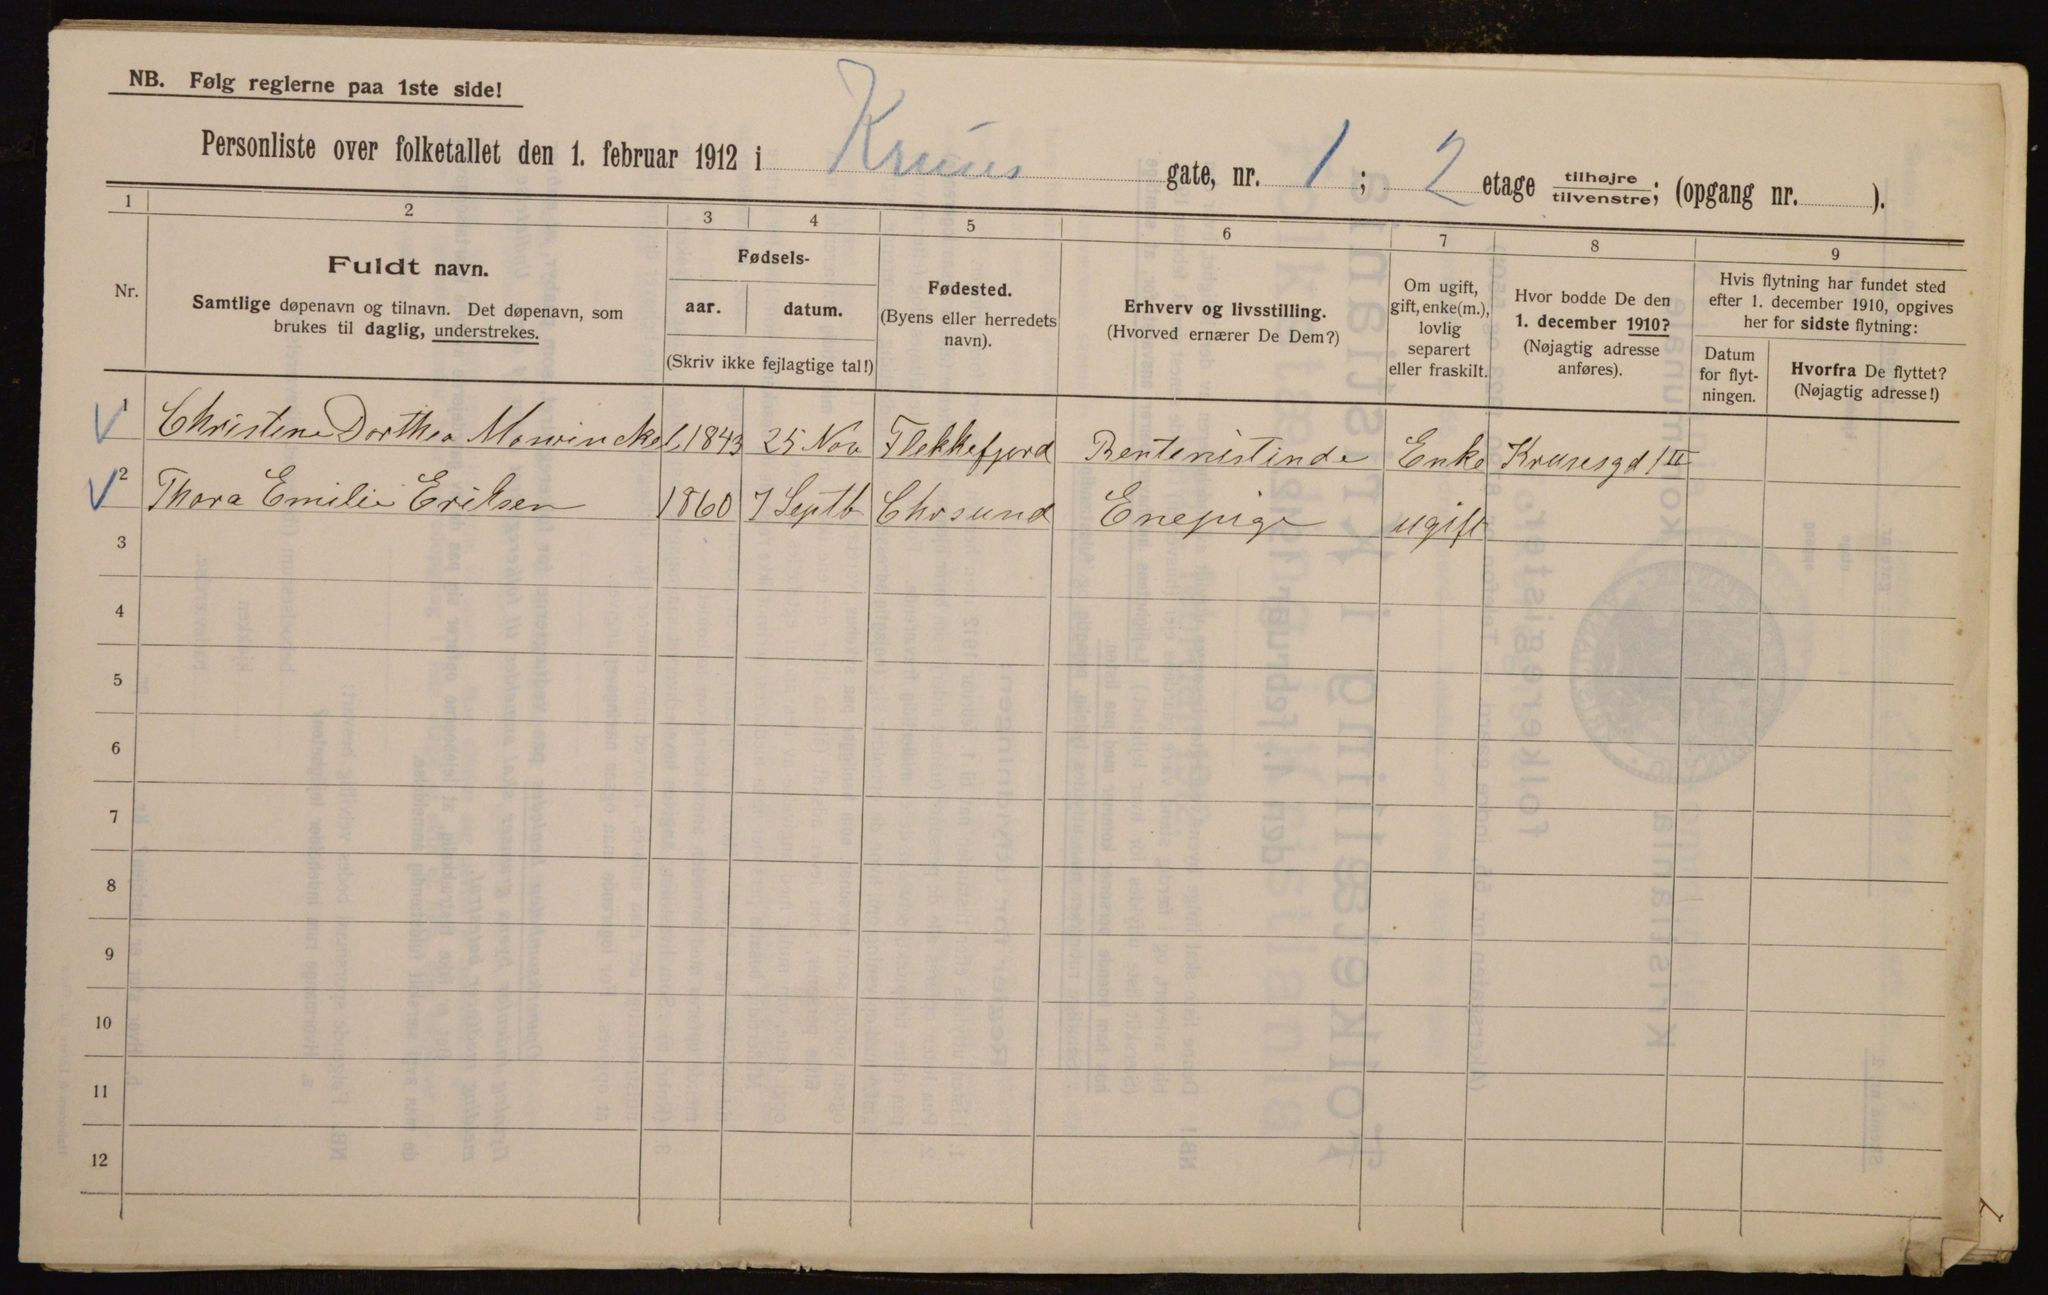 NB. Følg reglerne paa 1ste side!
Personliste over folketallet den 1. februar 1912 i Kruses gate, nr. 1; 2 etage tilhøjre tilvenstre; (opgang nr. ).
1 2 3 4 5 6 7 8 9
Nr.
Fuldt navn.
Samtlige døpenavn og tilnavn. Det døpenavn, som
brukes til daglig, understrekes.
Fødsels-
aar. datum.
(Skriv ikke fejlagtige tal!)
Fødested.
(Byens eller herredets
navn).
Erhverv og livsstilling.
(Hvorved ernærer De Dem?)
Om ugift,
gift, enke(m.),
lovlig
separert
eller fraskilt.
Hvor bodde De den
1. december 1910?
(Nøjagtig adresse
anføres).
Hvis flytning har fundet sted
efter 1. december 1910, opgives
her for sidste flytning:
Datum
for flyt-
ningen.
Hvorfra De flyttet?
(Nøjagtig adresse!)
1 Christene Dorthea Mowinckel 1843 25 Nov Flekkefjord Rentenistinde Enke Krusesgd 1 II
2 Thora Emilie Eriksen 1860 7 Septb Chrsund Enepige ugift
3
4
5
6
7
8
9
10
11
12